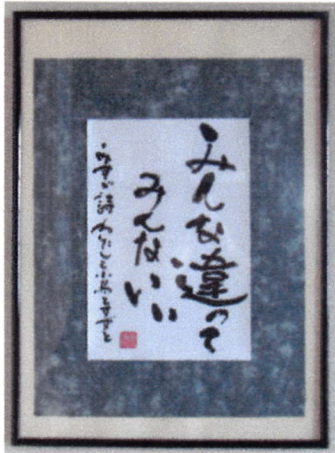 みんな違って
みんないい
みすゞ詩 わたしと小鳥とすずと